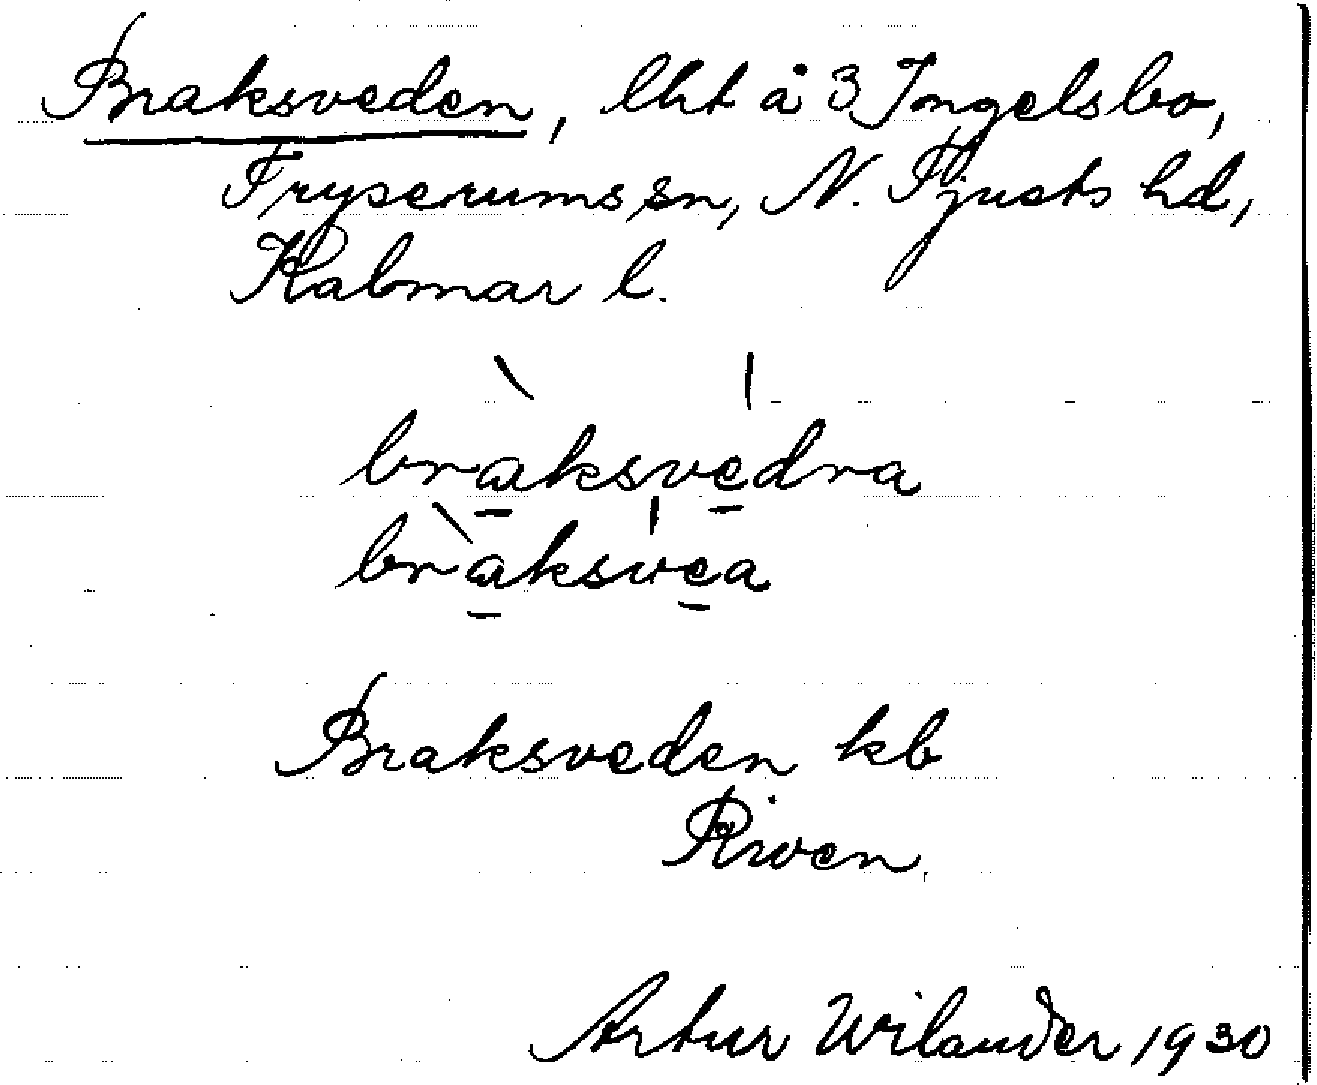 Braksveden, lht å 3 Ingelsbo,
Tryserums sn, N. Tjusts hd,
Kalmar l.
bràksvedra
bràksvea
Braksveden kb
Riven.
Artur Wilander 1930